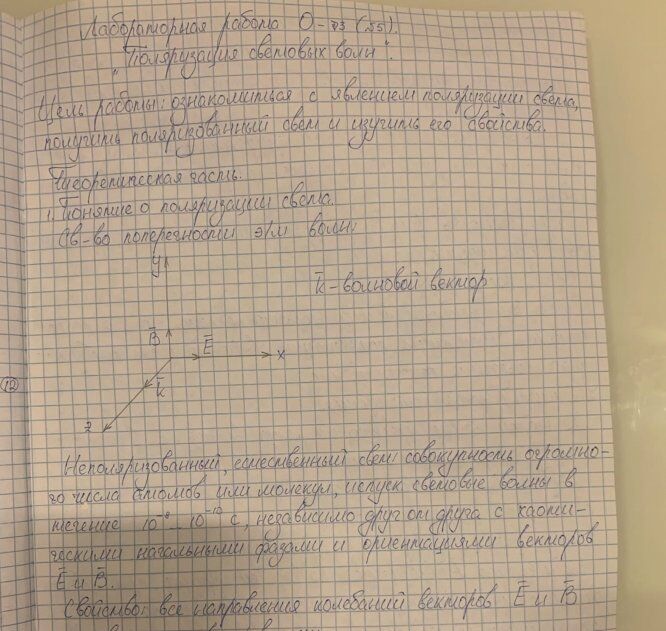 Лабораторная работа О-73 (55).
"Поляризация световых волн".
Цель работы: ознакомиться с явлением поляризации света,
получить поляризованный свет и изучить его свойства.
Теоретическая часть.
1. Понятие о поляризации света.
Св-во поперечности э/м волн:
y
k̄ - волновой вектор
B̄ Ē x
12 k̄
z
Неполяризованный, естественный свет: совокупность огромно-
го числа атомов или молекул, испуск световые волны в
течение 10⁻⁸ - 10⁻¹⁰ с, независимо друг от друга с хаоти-
ческими начальными фазами и ориентациями векторов
Ē и B̄.
Свойство: все направления колебаний векторов Ē и B̄